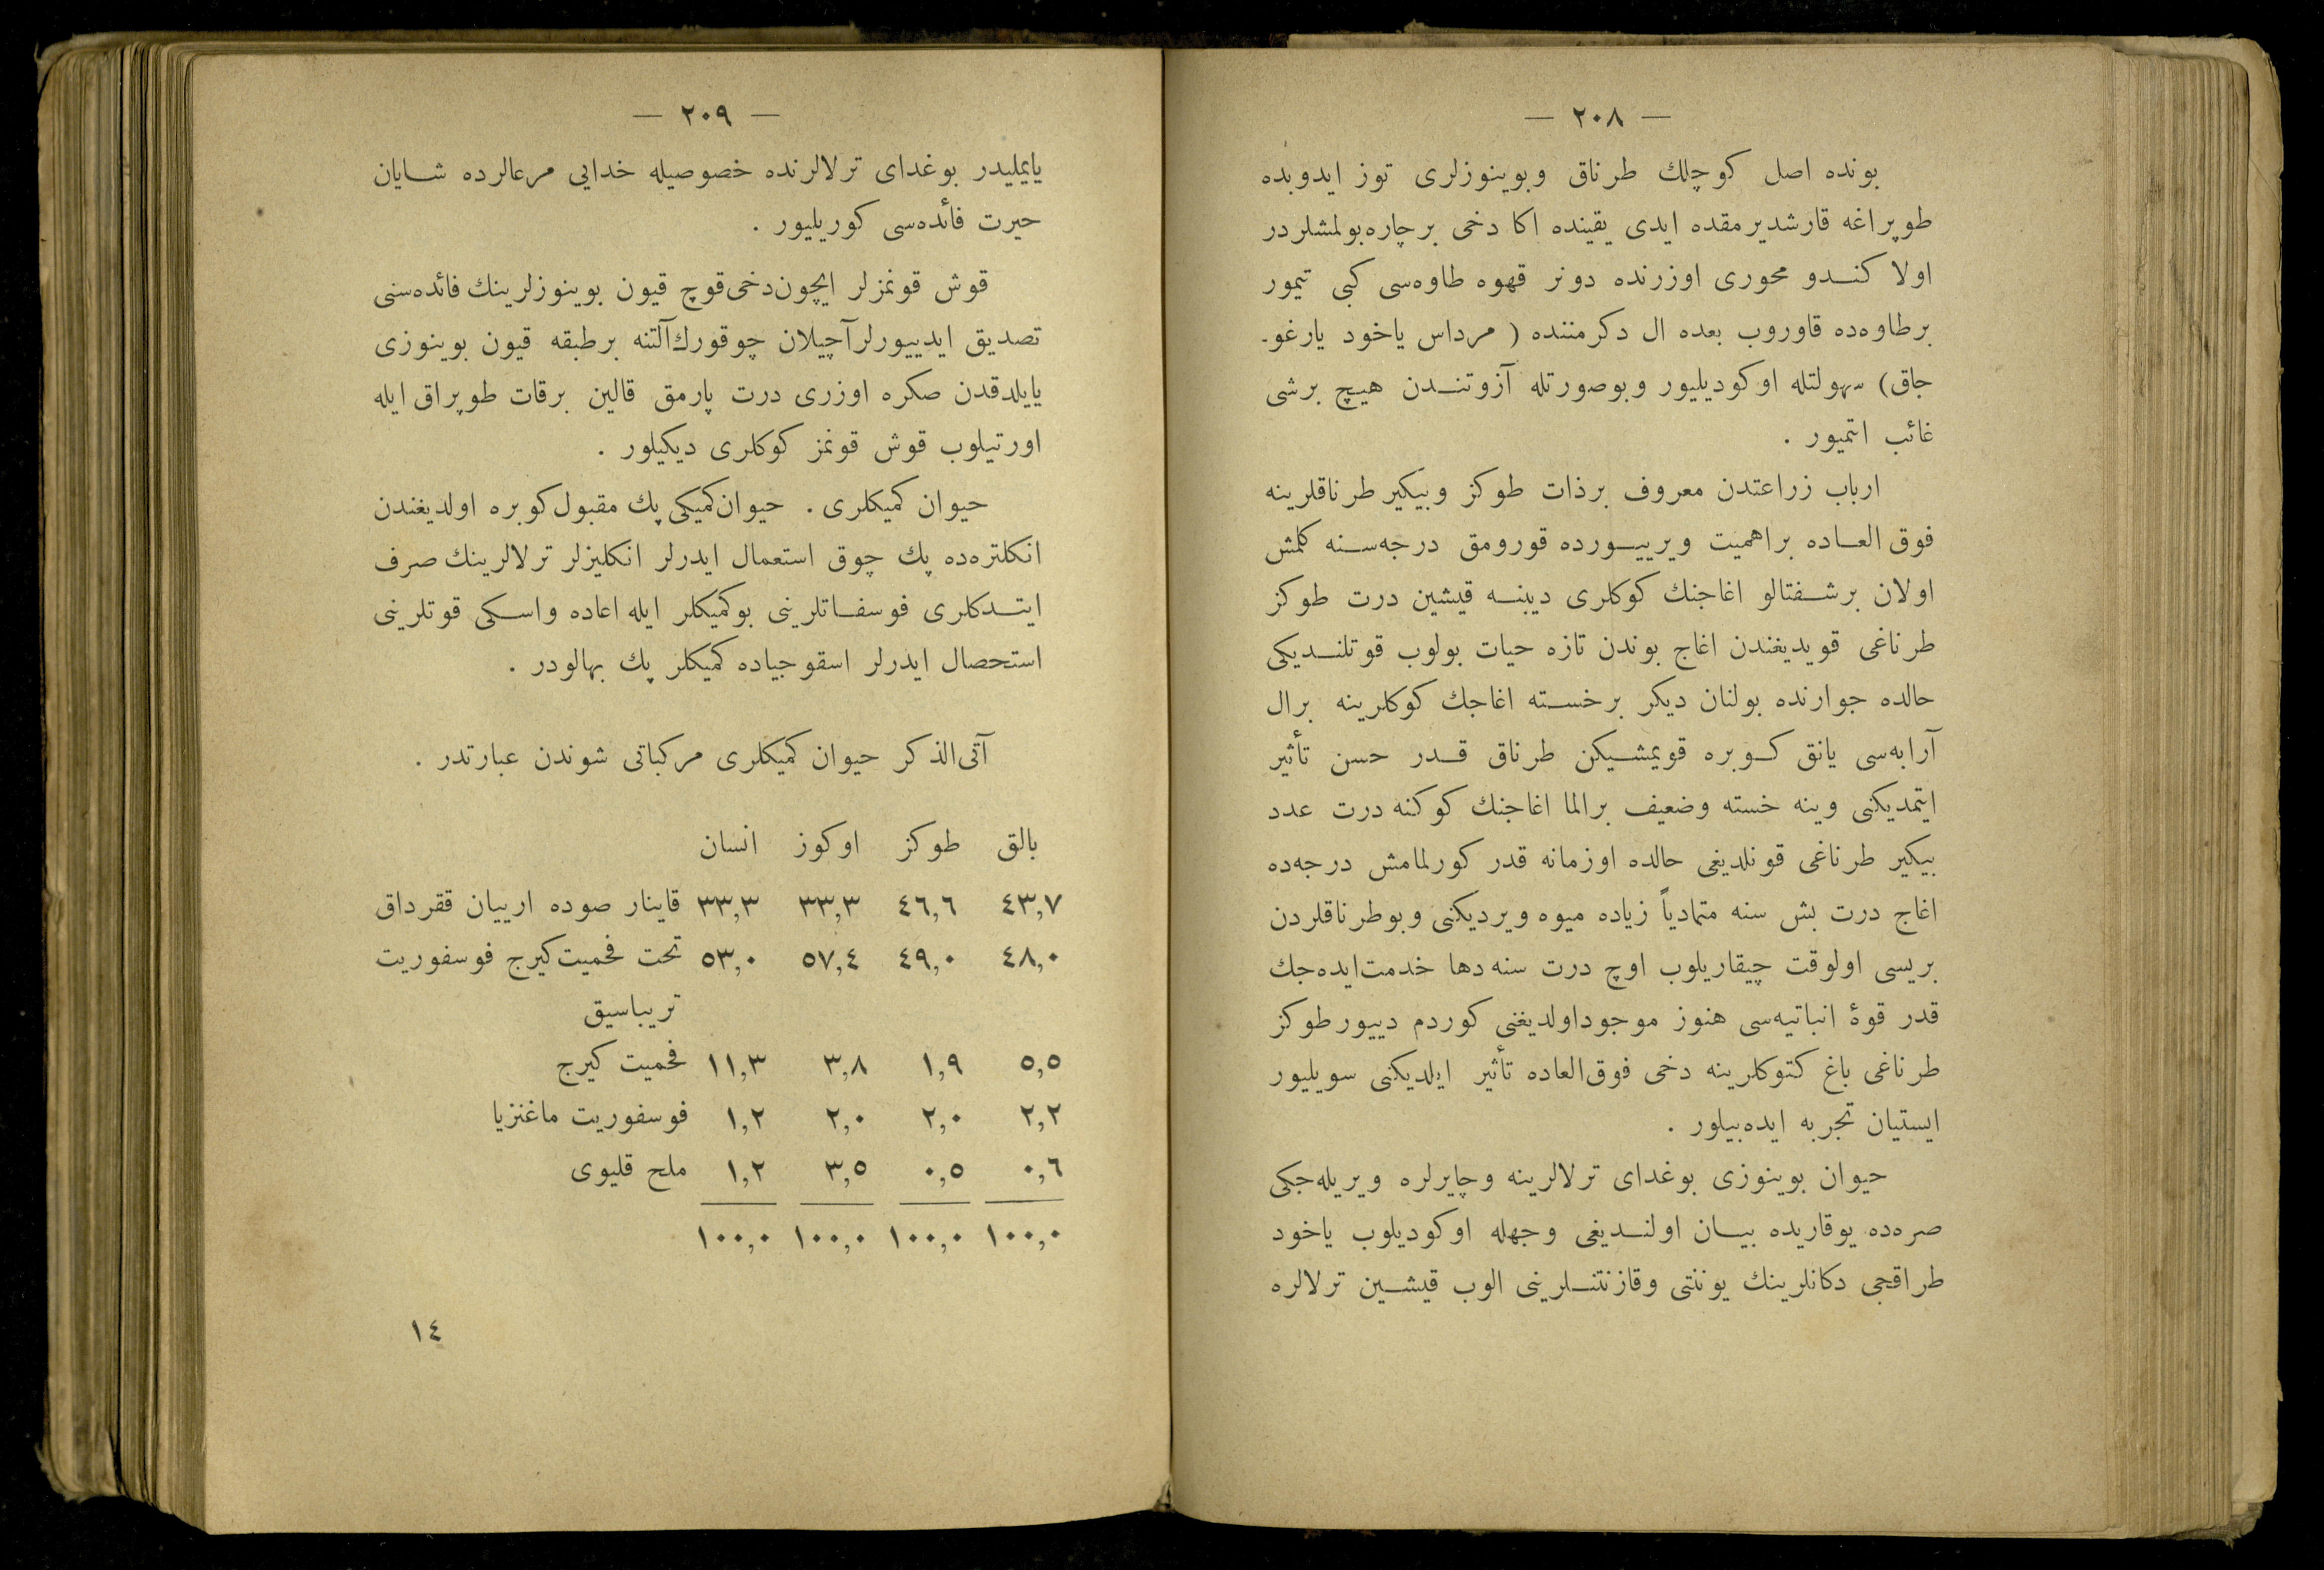 — ٢٠٨ —
بونده اصل كوچلك طرناق وبوینوزلری توز ایدوبده
طوپراغه قارشدیرمقده ایدی یقینده اكا دخی برچاره بولمشلردر
اولا كندو محوری اوزرنده دونر قهوه طاوه‌سی كبی تیمور
برطاوه‌ده قاوروب بعده ال دكرمننده ( مرداس یاخود یارغو-
جاق) سهولتله اوكودیلیور وبوصورتله آزوتندن هیچ برشی
غائب اتمیور .
ارباب زراعتدن معروف برذات طوكز وبیكیر طرناقلرینه
فوق العاده براهمیت ویرییورده قورومق درجه‌سنه كلمش
اولان برشفتالو اغاجنك كوكلری دیبنه قیشین درت طوكز
طرناغی قویدیغندن اغاج بوندن تازه حیات بولوب قوتلندیكی
حالده جوارنده بولنان دیكر برخسته اغاجك كوكلرینه برال
آرابه‌سی یانق كوبره قویمشیكن طرناق قدر حسن تأثیر
ایتمدیكنی وینه خسته وضعیف برالما اغاجنك كوكنه درت عدد
بیكیر طرناغی قونلدیغی حالده اوزمانه قدر كورلمامش درجه‌ده
اغاج درت بش سنه متمادیاً زیاده میوه ویردیكنی وبوطرناقلردن
بریسی اولوقت چیقاریلوب اوچ درت سنه دها خدمت‌ایده‌جك
قدر قوۀ انباتیه‌سی هنوز موجوداولدیغنی كوردم دییور طوكز
طرناغی باغ كتوكلرینه دخی فوق‌العاده تأثیر ایلدیكنی سویلیور
ایستیان تجربه ایده‌بیلور .
حیوان بوینوزی بوغدای ترلالرینه وچایرلره ویریله‌جكی
صره‌ده یوقاریده بیان اولندیغی وجهله اوكودیلوب یاخود
طراقجی دكانلرینك یوننتی وقازنتیلرینی الوب قیشین ترلالره
— ٢٠٩ —
یایملیدر بوغدای ترلالرنده خصوصیله خدایی مرعالرده شایان
حیرت فائده‌سی كوریلیور .
قوش قونمزلر ایچون‌دخی‌قوچ قیون بوینوزلرینك فائده‌سنی
تصدیق ایدییورلرآچیلان چوقورك‌آلتنه برطبقه قیون بوینوزی
یایلدقدن صكره اوزری درت پارمق قالین برقات طوپراق ایله
اورتیلوب قوش قونمز كوكلری دیكیلور .
حیوان كمیكلری . حیوان‌كمیكی پك مقبول كوبره اولدیغندن
انكلتره‌ده پك چوق استعمال ایدرلر انكلیزلر ترلالرینك صرف
ایتدكلری فوسفاتلرینی بوكمیكلر ایله اعاده واسكی قوتلرینی
استحصال ایدرلر اسقوجیاده كمیكلر پك بهالودر .
آتی‌الذكر حیوان كمیكلری مركباتی شوندن عبارتدر .
بالق طوكز اوكوز انسان
٤٣,٧ ٤٦,٦ ٣٣,٣ ٣٣,٣ قاینار صوده ارییان ققرداق
٤٨,٠ ٤٩,٠ ٥٧,٤ ٥٣,٠ تحت فحمیت‌كیرج فوسفوریت
تریباسیق
٥,٥ ١,٩ ٣,٨ ١١,٣ فحمیت كیرج
٢,٢ ٢,٠ ٢,٠ ١,٢ فوسفوریت ماغنزیا
٠,٦ ٠,٥ ٣,٥ ١,٢ ملح قلیوی
١٠٠,٠ ١٠٠,٠ ١٠٠,٠ ١٠٠,٠
١٤